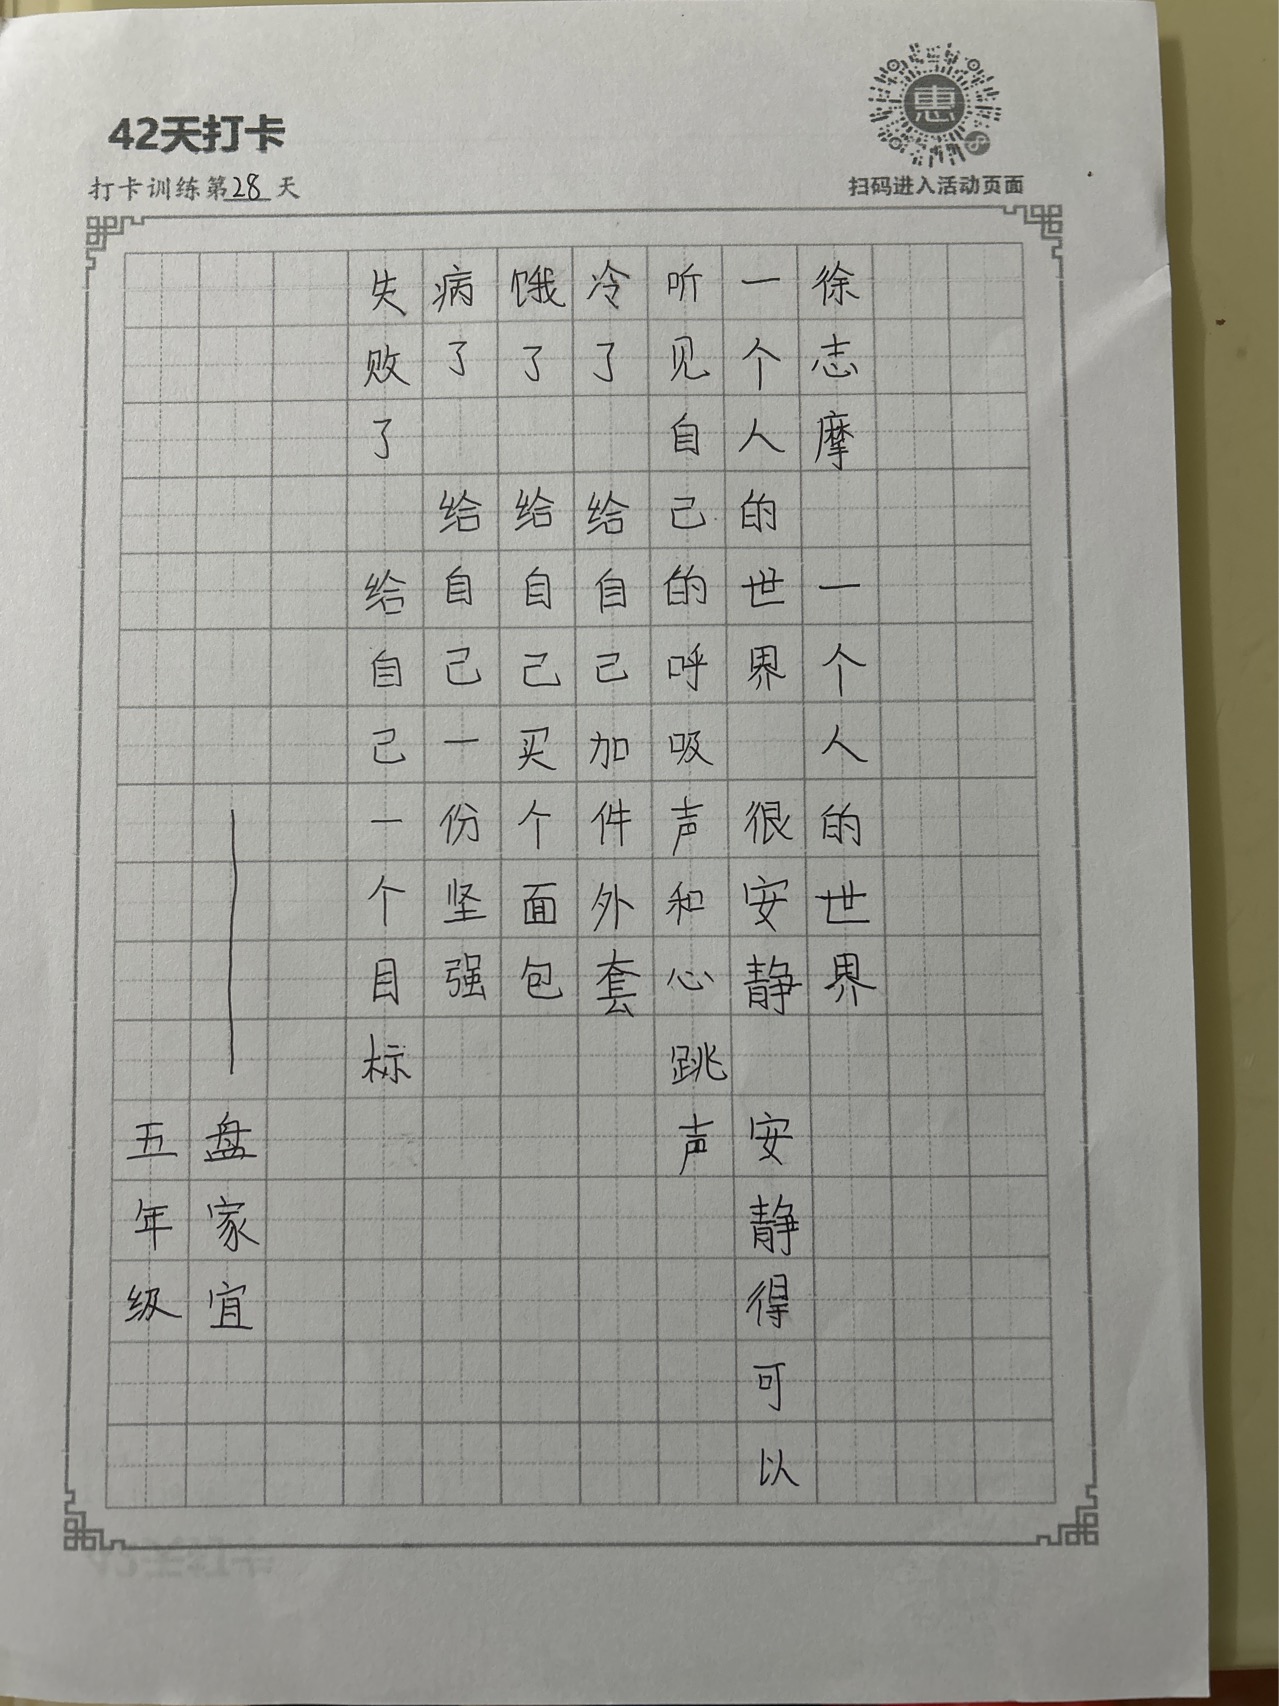 42天打卡
打卡训练第28天
惠
扫码进入活动页面
徐志摩 一个人的世界
一个人的世界 很安静 安静得可以
听见自己的呼吸声和心跳声
冷了 给自己加件外套
饿了 给自己买个面包
病了 给自己一份坚强
失败了 给自己一个目标
——盘家宜
五年级